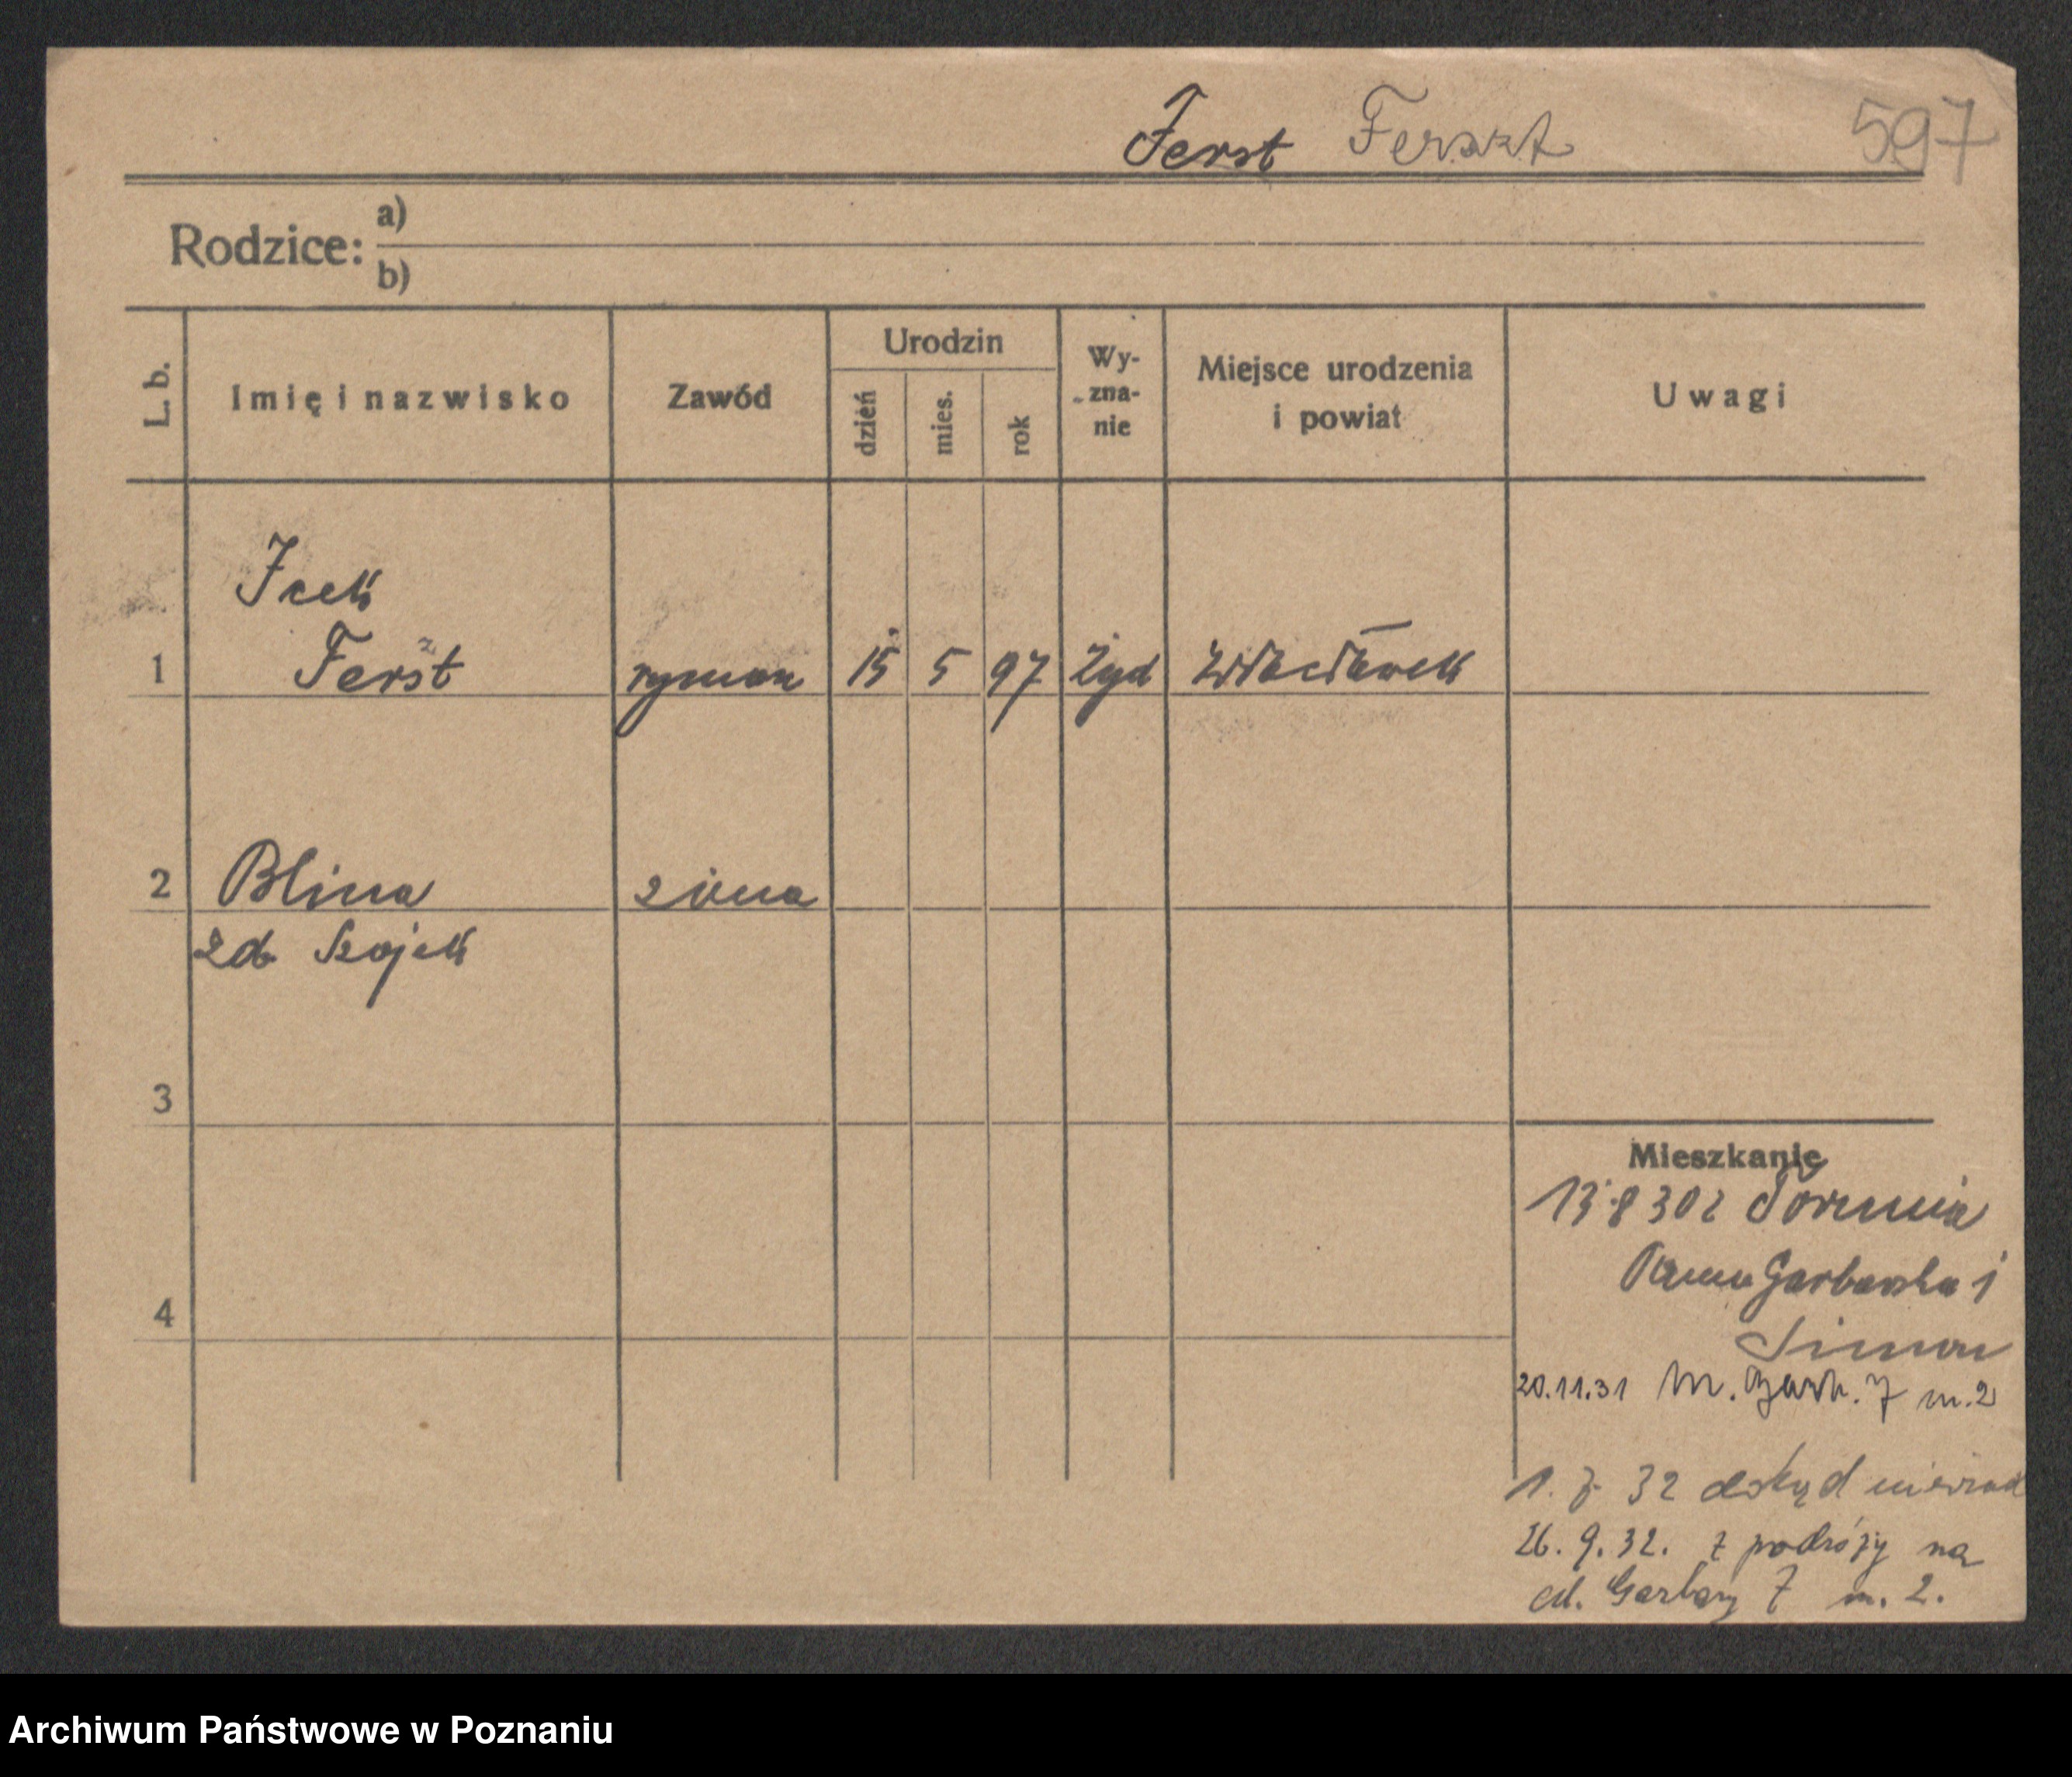 Ferst Ferszt 597
Rodzice: a)
b)
L. b. Imię i nazwisko Zawód Urodzin dzień mies. rok Wy-zna-nie Miejsce urodzenia i powiat Uwagi
Icek
1 Ferszt rymarz 15 5 97 żyd Włocławek
2 Blima żona
zd. Szojek
3
Mieszkanie
13.8 30 z Torunia
Garbarska 1
4
Simon
20.11.31 M. Garb. 7 m. 2
1. 7. 32 dokąd niewiad
26. 9. 32. z podróży na
ul. Garbary 7 m. 2.
Archiwum Państwowe w Poznaniu